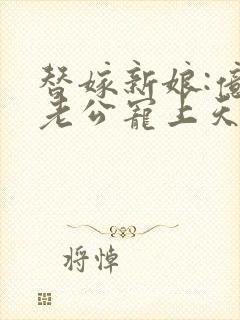 替嫁新娘:億
老公寵上天
将悼